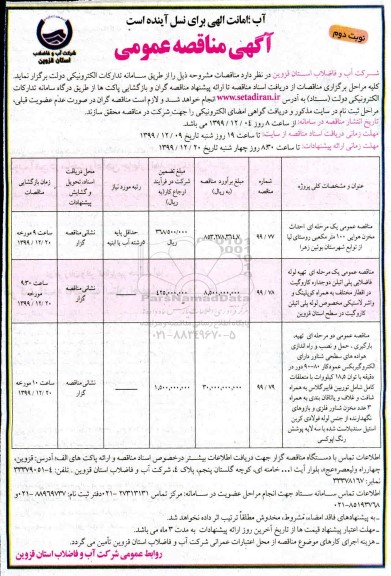 آب ؛امانت الهی برای نسل آینده است
آگهی مناقصه عمومی
نوبت دوم
شرکت آب و فاضلاب
استان قزوین
شرکت آب و فاضلاب استان قزوین در نظر دارد مناقصات مشروحه ذیل را از طریق سامانه تدارکات الکترونیکی دولت برگزار نماید.
کلیه مراحل برگزاری مناقصات از دریافت اسناد مناقصه تا ارائه پیشنهاد مناقصه گران و بازگشایی پاکت ها از طریق درگاه سامانه تدارکات
الکترونیکی دولت (ستاد) به آدرس www.setadiran.ir انجام خواهد شد و لازم است مناقصه گران در صورت عدم عضویت قبلی،
مراحل ثبت نام در سایت مذکور و دریافت گواهی امضای الکترونیکی را جهت شرکت در مناقصه محقق سازند.
تاریخ انتشار مناقصه در سامانه: از ساعت ۸ روز ۰۴ / ۱۲ / ۱۳۹۹ می باشد.
مهلت زمانی دریافت اسناد مناقصه از سایت: تا ساعت ۱۹ روز شنبه تاریخ ۰۹ / ۱۲ / ۱۳۹۹
مهلت زمانی ارائه پیشنهادات: تا ساعت ۸:۳۰ روز چهار شنبه تاریخ ۲۰ / ۱۲ / ۱۳۹۹
عنوان و مشخصات کلی پروژه
شماره مناقصه
مبلغ برآورد مناقصه (به ریال)
مبلغ تضمین شرکت در فرآیند ارجاع کار(به ریال)
رتبه مورد نیاز
محل دریافت اسناد، تحویل و گشایش پیشنهادات
زمان بازگشایی مناقصات
مناقصه عمومی یک مرحله ای احداث مخزن هوایی ۱۰۰ متر مکعبی روستای لیا از توابع شهرستان بوئین زهرا
۹۹ / ۷۷
ریال
حداقل پایه ۵ رشته آب یا ابنیه
نشانی مناقصه گزار
ساعت ۹ مورخه ۲۰ / ۱۲ / ۱۳۹۹
مناقصه عمومی یک مرحله ای تهیه لوله فاضلابی پلی اتیلن دوجداره کاروگیت در اقطار مختلف به همراه کوپلینگ و واشر لاستیکی مخصوص لوله پلی اتیلن کاروگیت در سطح استان قزوین
۹۹ / ۷۸
۸,۵۰۰,۰۰۰,۰۰۰
۴۲۵,۰۰۰,۰۰۰
نشانی مناقصه گزار
ساعت ۹:۳۰ مورخه ۲۰ / ۱۲ / ۱۳۹۹
مناقصه عمومی دو مرحله ای تهیه، بارگیری ، حمل و نصب و راه اندازی هواده های سطحی شناور دارای الکتروگیربکس عمودکار ۸۰-۹۰ دور در دقیقه با توان ۱۸.۵ کیلووات با متعلقات کامل شامل توربین فایبرگلاس به همراه شافت و غلاف و یاتاقان بندی به همراه ۳ عدد مخزن شناور فلزی و بازوهای نگهدارنده از جنس لوله فولادی کربن استیل سندبلاست شده با سه لایه پوشش رنگ اپوکسی
۹۹ / ۷۹
۳۰,۰۰۰,۰۰۰,۰۰۰
۱,۵۰۰,۰۰۰,۰۰۰
نشانی مناقصه گزار
ساعت ۱۰ مورخه ۲۰ / ۱۲ / ۱۳۹۹
ParsNamadData
۰۲۱-۸۸۳۴۹۶۷۰-۵
اطلاعات تماس با دستگاه مناقصه گزار جهت دریافت اطلاعات بیشتر درخصوص اسناد مناقصه و ارائه پاکت های الف: آدرس: قزوین،
چهارراه ولیعصر«عج»، بلوار آیت ا... خامنه ای، کوچه گلستان پنجم، پلاک ۴، شرکت آب و فاضلاب استان قزوین . تلفن: ۴-۳۳۳۷۹۰۵۱
نمابر: ۳۳۳۷۸۱۶۷
اطلاعات تماس سامانه ستاد جهت انجام مراحل عضویت در سامانه: مرکز تماس ۲۷۳۱۳۱۳۱-۰۲۱ دفتر ثبت نام: ۸۸۹۶۹۷۳۷-۰۲۱ و
۸۵۱۹۳۷۶۸-۰۲۱
ـ به پیشنهادهای فاقد امضاء، مشروط، مخدوش مطلقاً ترتیب اثر داده نخواهد شد.
ـ مهلت اعتبار پیشنهاد قیمت ها از تاریخ آخرین روز ارائه پیشنهادات به مدت ۳ ماه می باشد.
ـ هزینه اجرای کارهای موضوع مناقصه از محل اعتبارات عمرانی شرکت آب و فاضلاب استان قزوین تأمین می گردد.
روابط عمومی شرکت آب و فاضلاب استان قزوین